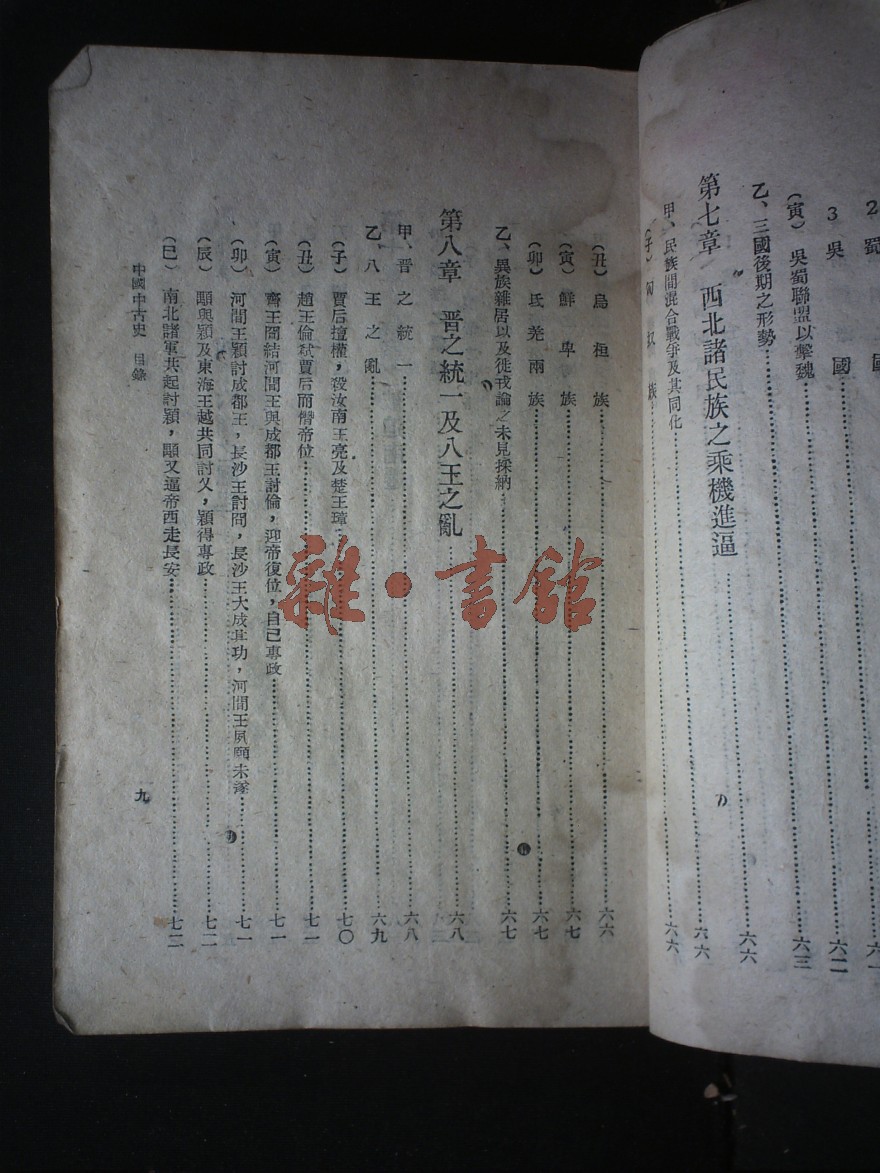 2 蜀 國 六一
3 吳 國 六二
(寅) 吳蜀聯盟以擊魏 六三
乙、三國後期之形勢 六六
第七章 西北諸民族之乘機進逼 六六
甲、民族間混合戰爭及其同化 六六
(子) 匈奴族
(丑) 烏桓族 六六
(寅) 鮮卑族 六七
(卯) 氐羌兩族 六七
乙、異族雜居以及徙戎論之未見採納 六七
第八章 晋之統一及八王之亂 六八
甲、晋之統一 六八
乙、八王之亂 六九
(子) 賈后擅權，殺汝南王亮及楚王瑋 七〇
(丑) 趙王倫弒賈后而僭帝位 七一
(寅) 齊王冏結河間王與成都王討倫，迎帝復位，自己專政 七一
(卯) 河間王顒討成都王，長沙王討冏，長沙王大成其功，河間王夙願未遂 七一
(辰) 顒與穎及東海王越共同討乂，穎得專政 七二
(巳) 南北諸軍共起討穎，顒又逼帝西走長安 七二
中國中古史 目錄
九
雜·書館